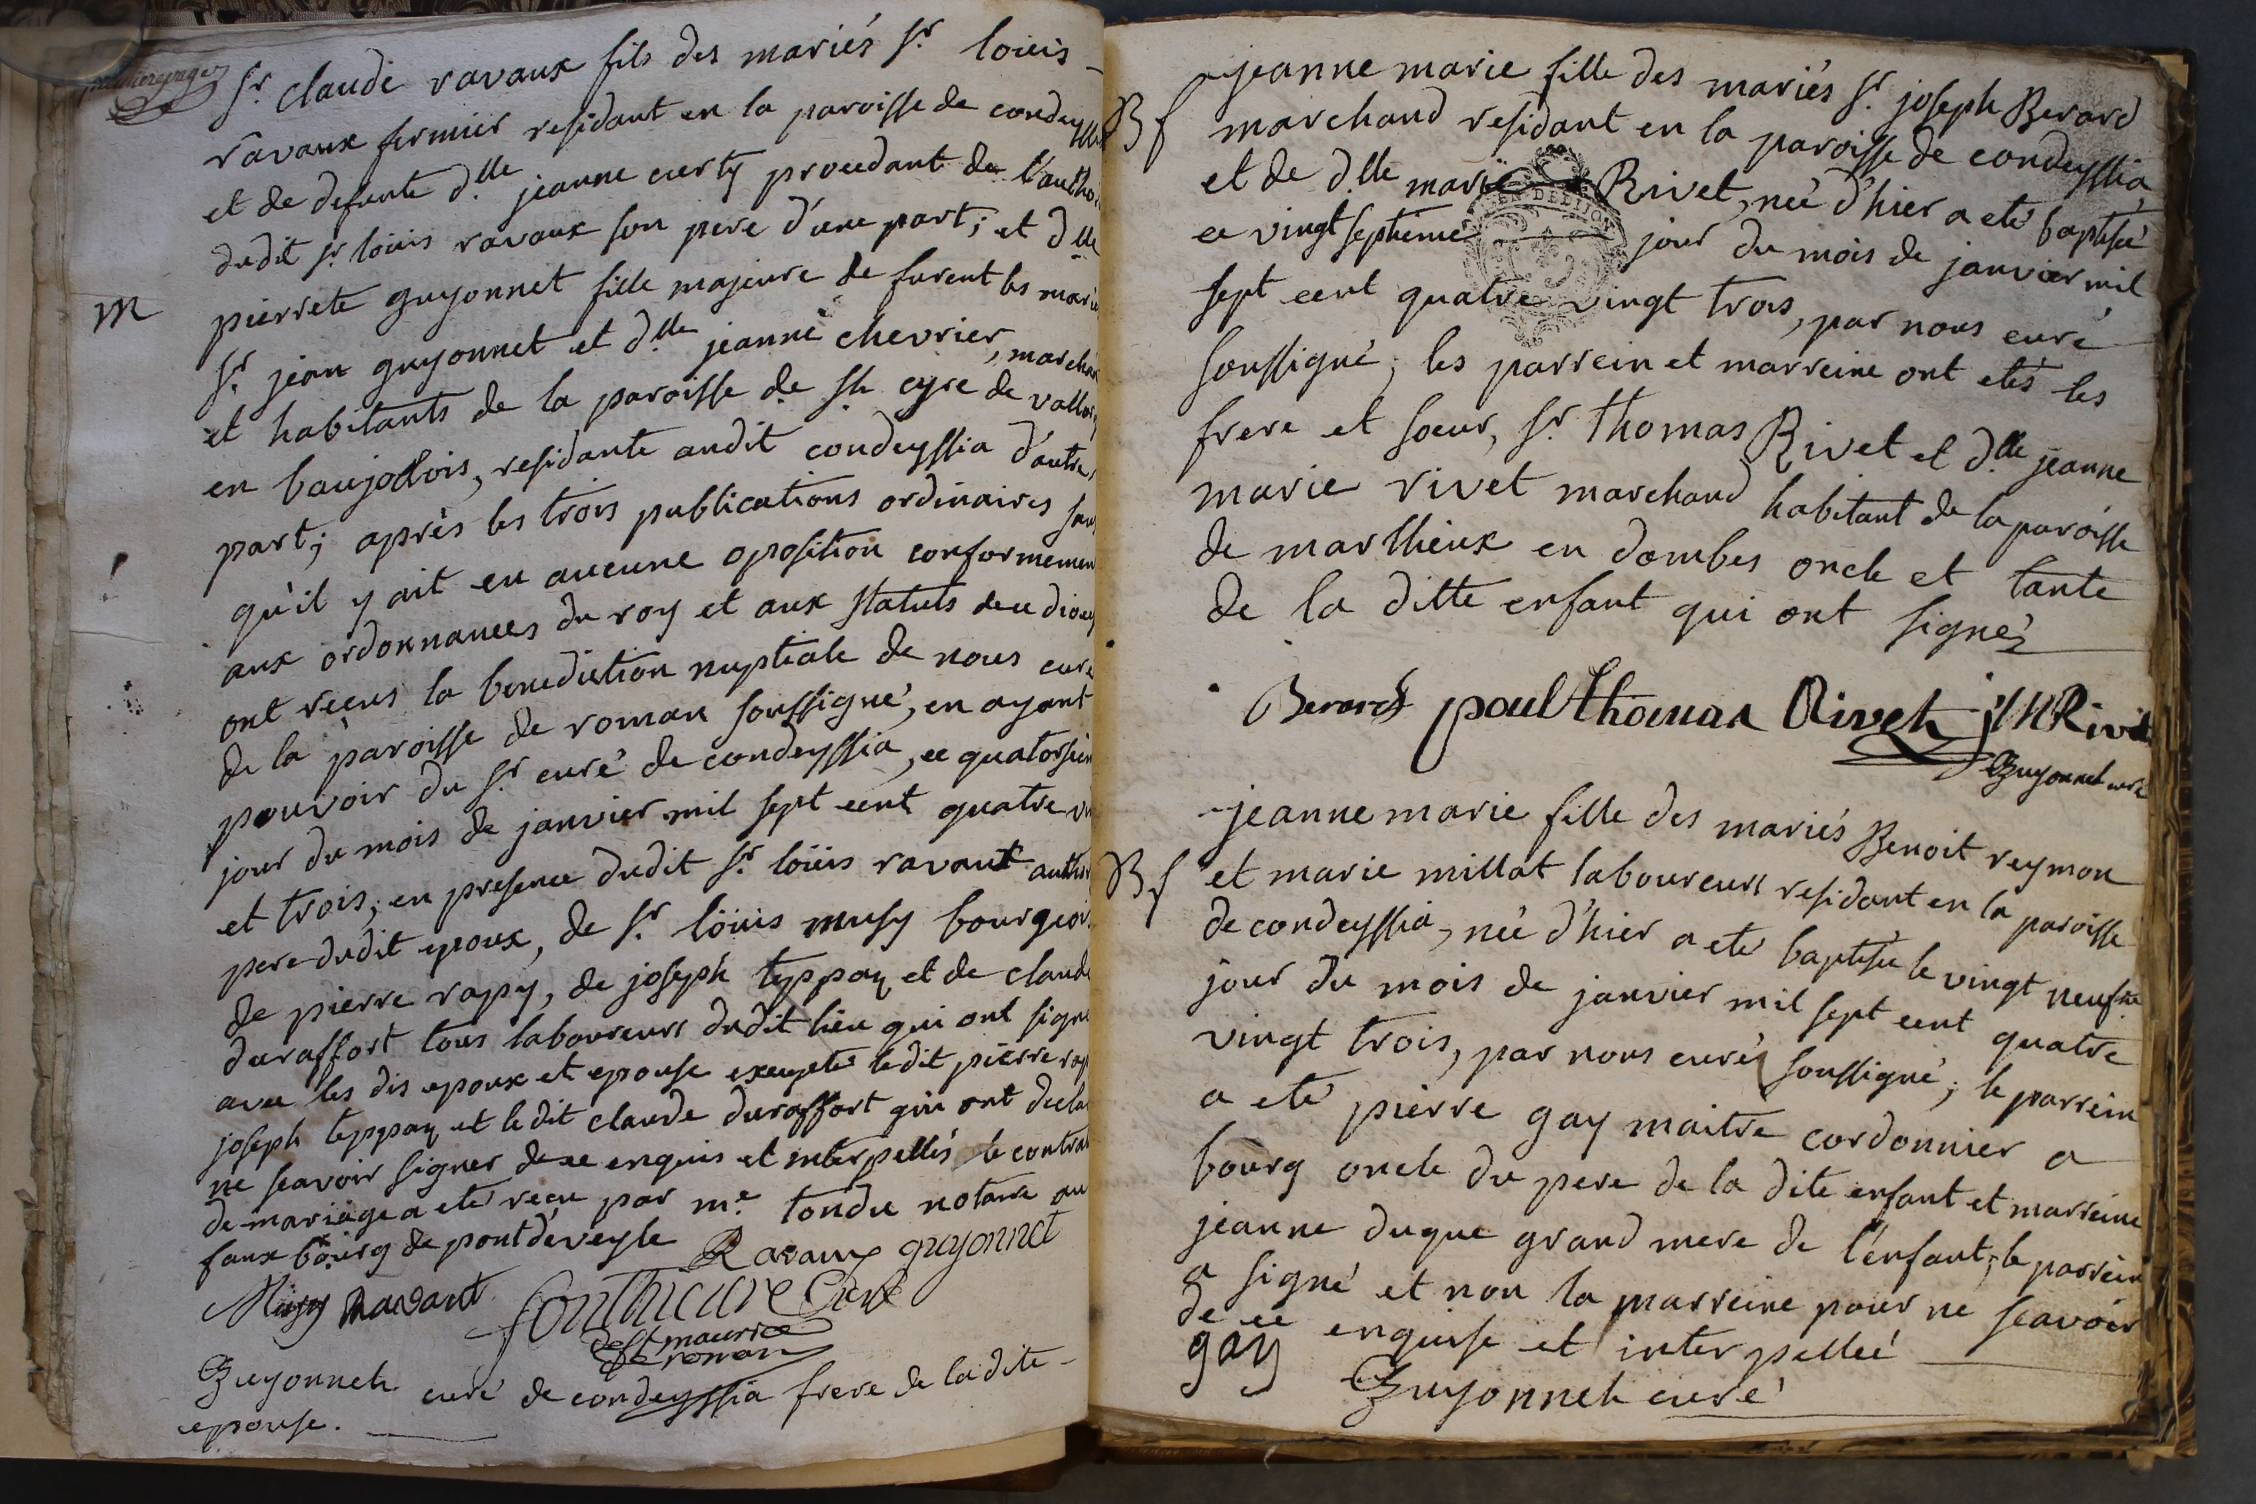 premiere page
Sr. claude ravaux fils des mariés Sr. loüis
ravaux fermier residant en la paroisse de condeyssia
et de defunte dlle jeanne curty procedant de l'autho
dudit Sr. loüis ravaux son pere d'une part; et dlle
M
pierrete guyonnet fille majeure de furent les marié
Sr. jean guyonnet et dlle jeanne chevrier, marchan
et habitants de la paroisse de St. cyre de vallor
en baujollois, residante audit condeyssia d'autre
part; après les trois publications ordinaires san
qu'il y ait eu aucune oposition conformemen
aux ordonnances du roy et aux statuts de ce dioce
ont recus la benediction nuptiale de nous curé
de la paroisse de roman soussigné, en ayant
pouvoir du Sr. curé de condeyssia, ce quatorsiem
jour du mois de janvier mil sept cent quatre vin
et trois; en presence dudit Sr. loüis ravaux
pere dudit epoux, de Sr. loüis musy bourgeois
de pierre rapy, de joseph teppay et de claude
duraffort tous laboureurs dudit lieu qui ont signé
avec les dis epoux et epouse excepté ledit pierre rap
joseph teppay et ledit claude duraffort qui ont decla
ne scavoir signer de ce enquis et interpellés le contrat
de mariage a eté recu par me. tondu notaire au
faux bourg de pontdeveyle
Ravaux guyonnet
Musy Ravaux
fonthieure Curé
de St maurice
de roman
Guyonnet curé de condeyssia frere de ladite
epouse.
Bf
jeanne marie fille des mariés Sr. joseph Berard
marchand residant en la paroisse de condeyssia
et de dlle marie Rivet, née d'hier a eté baptisée
ce vingt septieme jour du mois de janvier mil
sept cent quatre vingt trois, par nous curé
soussigné; les parrein et marreine ont etés les
frere et soeur, Sr. thomas Rivet et dlle jeanne
marie rivet marchand habitant de la paroisse
de marlhieux en dombes oncle et tante
de la ditte enfant qui ont signés
Berard paul thomas Rivet j M Rivet
Guyonnet curé
Bf
jeanne marie fille des mariés Benoit reymon
et marie millat laboureurs residant en la paroisse
de condeyssia, née d'hier a eté baptisée le vingt neufme
jour du mois de janvier mil sept cent quatre
vingt trois, par nous curé soussigné; le parrein
a eté pierre gay maitre cordonnier a
bourg oncle du pere de la dite enfant et marreine
jeanne duque grand mere de l'enfant; le parrein
a signé et non la marreine pour ne scavoir
de ce enquise et interpellée
gay
Guyonnet curé